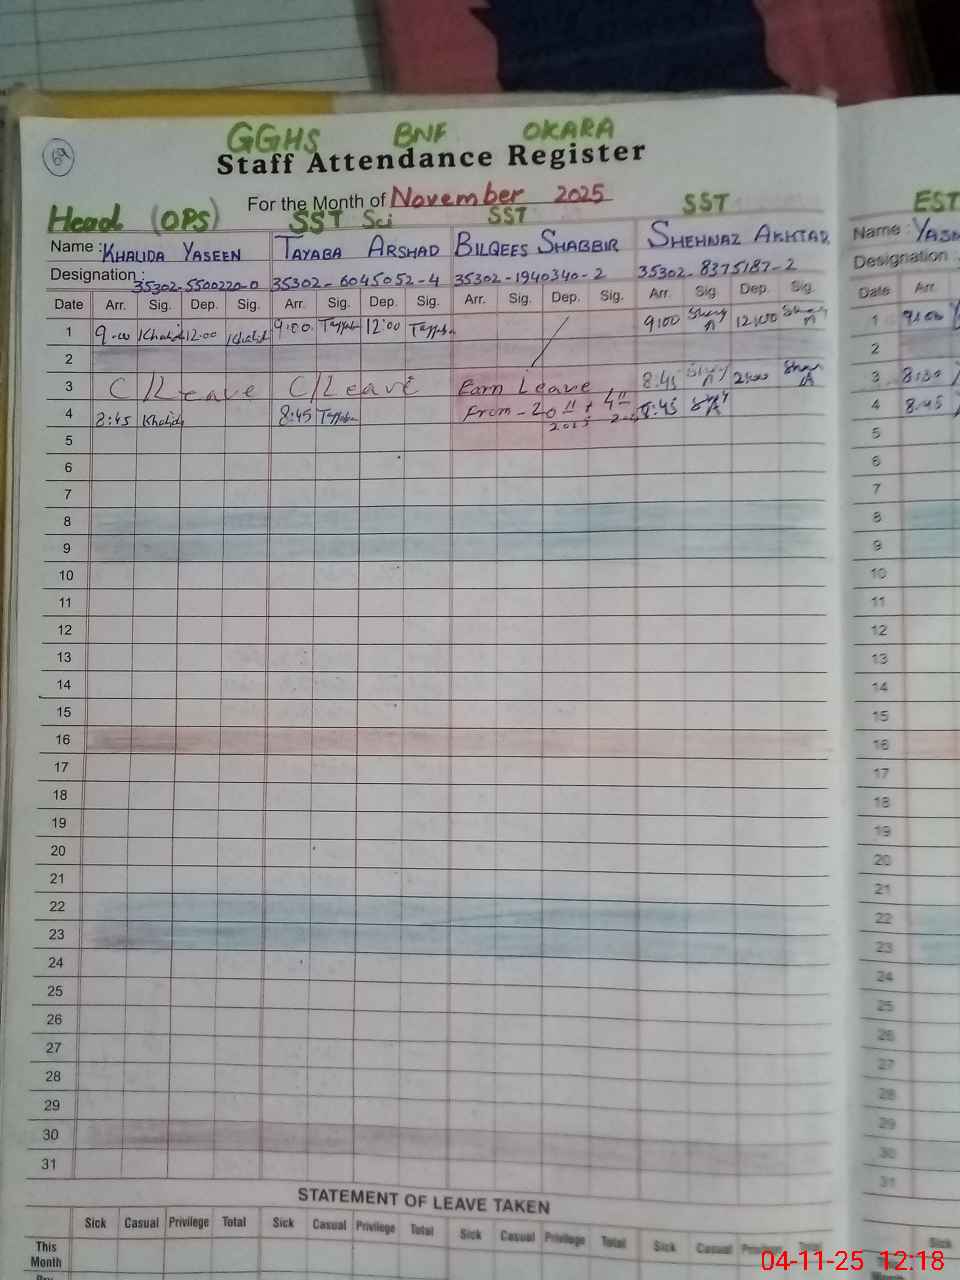 69
GGHS BNF OKARA
Staff Attendance Register
For the Month of November 2025
Head (OPS) SST Sci SST SST EST
Name : KHALIDA YASEEN TAYABA ARSHAD BILQEES SHABBIR SHEHNAZ AKHTAR Name :
Designation : 35302-5500220-0 35302-6045052-4 35302-1940340-2 35302-8375187-2 Designation
Date Arr. Sig. Dep. Sig. Arr. Sig. Dep. Sig. Arr. Sig. Dep. Sig. Arr. Sig Dep. Sig. Date Arr
1 9:00 Khalid 12:00 Khalid 9:00 12:00 9:00 12:00 1 9:00
2 2
3 C/Leave C/Leave Earn Leave 8:45 3 8:30
4 8:45 Khalid 8:45 From - 20 8:45 4 8:45
5 5
6 6
7 7
8 8
9 9
10 10
11 11
12 12
13 13
14 14
15 15
16 16
17 17
18 18
19 19
20 20
21 21
22 22
23 23
24 24
25 25
26 26
27 27
28 28
29 29
30 30
31 31
STATEMENT OF LEAVE TAKEN
Sick Casual Privilege Total Sick Casual Privilege Total Sick Casual Privilege Total Sick Casual Privilege Total Sick
This
Month
04-11-25 12:18